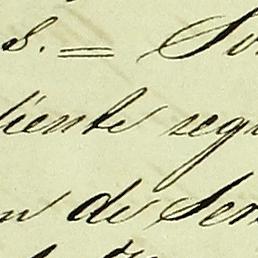 s. = So
diente segu
n de Sen